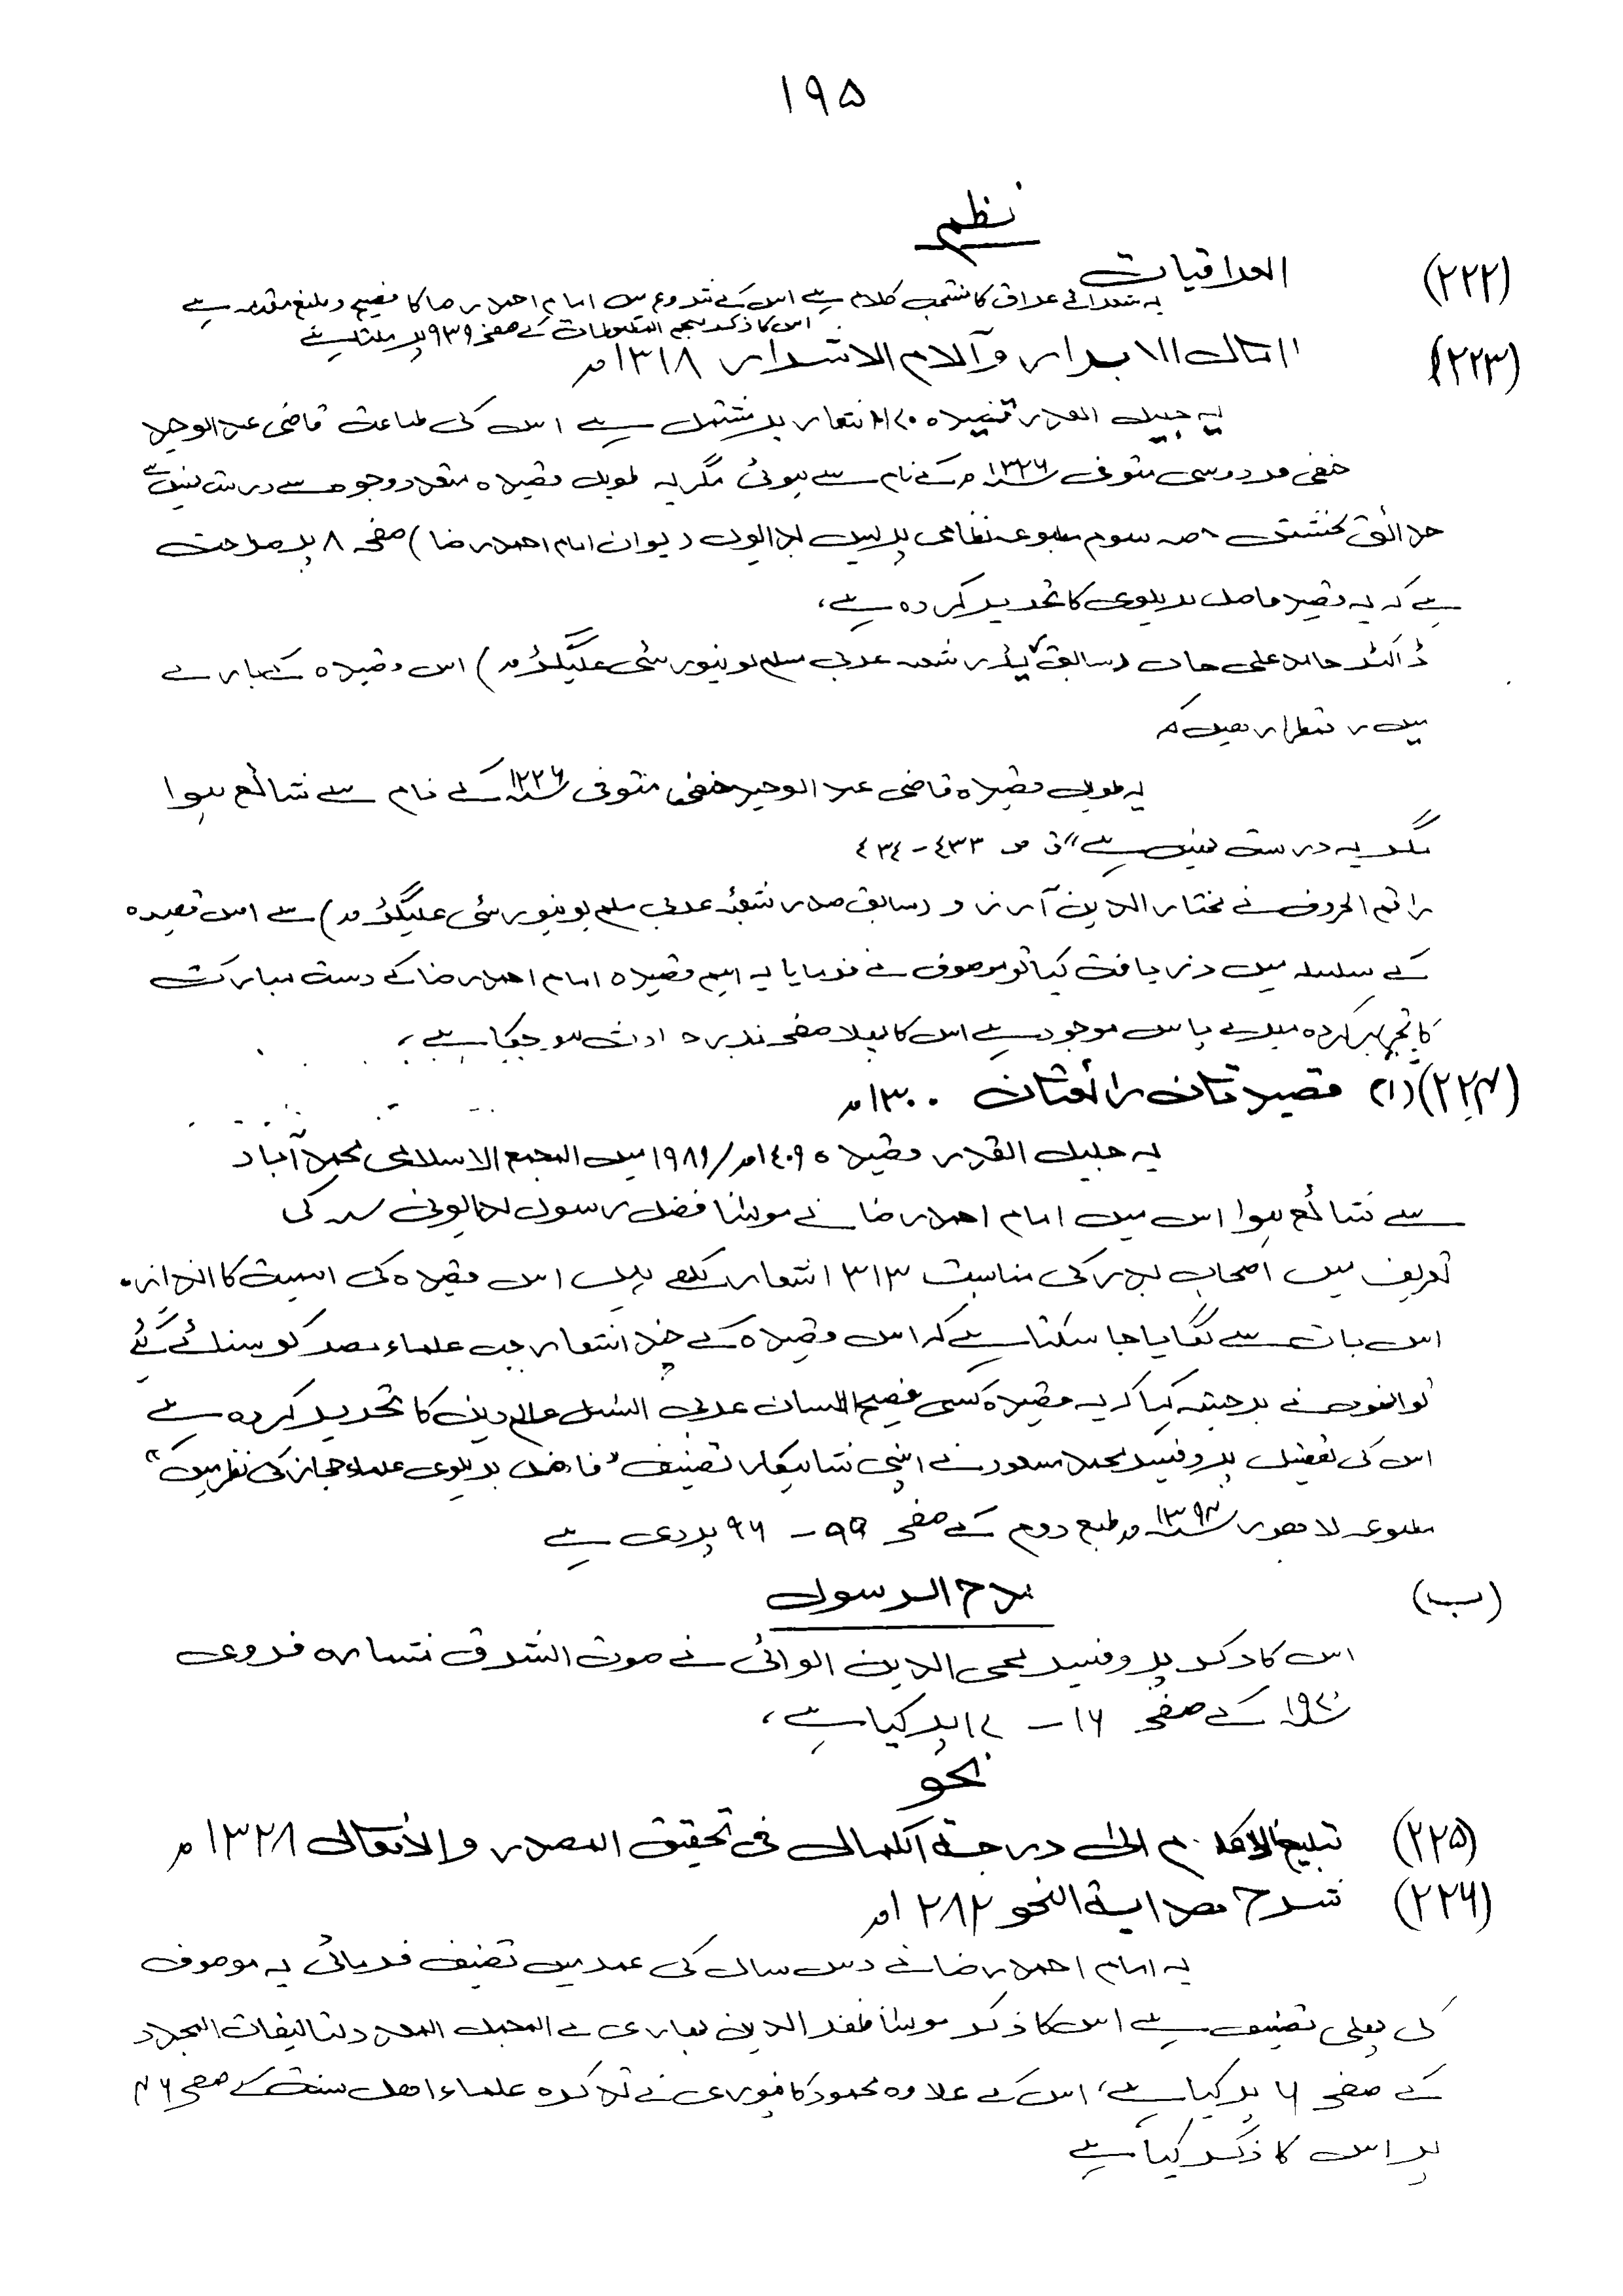 ۱۹۵
نظم
(۲۲۲) العراقیات
یہ شعرائے عراق کا منتخب کلام ہے اس کے شروع میں امام احمد رضا کا فصیح و بلیغ مقدمہ ہے
اس کا ذکر معجم المطبوعات کے صفحہ ۹۳۹ پر ملتا ہے
(۲۲۳) امال الابرار و آلام الاشرار ۱۳۱۸ھ
یہ جلیل القدر قصیدہ اشعار پر مشتمل ہے اس کی طباعت قاضی عبد الوحید
حنفی فردوسی متوفی ۱۳۲۶ھ کے نام سے ہوئی مگر یہ طویل قصیدہ متعدد وجوہ سے درست نہیں ہے
حدائق بخشش حصہ سوم مطبوعہ نظامی پریس بدایوں (دیوان امام احمد رضا) صفحہ ۸ پر صراحت
ہے کہ یہ قصیدہ فاضل بریلوی کا تحریر کردہ ہے،
ڈاکٹر حامد علی خاں (سابق ریڈر شعبہ عربی مسلم یونیورسٹی علیگڑھ) اس قصیدہ کے بارے
میں رقمطراز ہیں کہ
یہ طویل قصیدہ قاضی عبد الوحید حنفی متوفی ۱۳۲۶ھ کے نام سے شائع ہوا
مگر یہ درست نہیں ہے" ق ص ٤٣٣ - ٤٣٤
راقم الحروف نے مختار الدین آرزو (سابق صدر شعبۂ عربی مسلم یونیورسٹی علیگڑھ) سے اس قصیدہ
کے سلسلہ میں دریافت کیا تو موصوف نے فرمایا یہ اہم قصیدہ امام احمد رضا کے دست مبارک
کا تحریر کردہ میرے پاس موجود ہے اس کا پہلا صفحہ نذر حوادث ہو چکا ہے،
(۲۲۴) (ا) قصیدتان رائعتان ۱۳۰۰ھ
یہ جلیل القدر قصیدہ ۱٤۰۹ھ/۱۹۸۹ میں المجمع الاسلامی محمد آباد
سے شائع ہوا اس میں امام احمد رضا نے مولٰنا فضل رسول بدایونی کی
تعریف میں اصحاب بدر کی مناسبت ۳۱۳ اشعار لکھے ہیں اس قصیدہ کی اہمیت کا اندازہ
اس بات سے لگایا جا سکتا ہے کہ اس قصیدہ کے چند اشعار جب علماء مصر کو سنائے گئے
تو انھوں نے برجستہ کہا کہ یہ قصیدہ کسی فصیح اللسان عربی النسل عالم دین کا تحریر کردہ ہے
اس کی تفصیل پروفیسر محمد مسعود نے اپنی شاہکار تصنیف "فاضل بریلوی علماء حجاز کی نظر میں"
مطبوعہ لاھور ۱۳۹۲ھ طبع دوم کے صفحہ ۹۵ - ۹۶ پر دی ہے
(ب) مدح الرسول
اس کا ذکر پروفیسر محی الدین الوائی نے صوت الشرق شمارہ فروری
۱۹۷۰ کے صفحہ ۱۶ - ۱۷ پر کیا ہے،
نحو
(۲۲۵) تبلیغ الکلام الی درجۃ الکمال فی تحقیق المصدر والأفعال ۱۳۲۸ھ
(۲۲۶) شرح ھدایۃ النحو ۱۲۸۲ھ
یہ امام احمد رضا نے دس سال کی عمر میں تصنیف فرمائی یہ موصوف
کی پہلی تصنیف ہے اس کا ذکر مولٰنا ظفر الدین بہاری نے المجمل المعدد لتالیفات المجدد
کے صفحہ ۶ پر کیا ہے، اس کے علاوہ محمود کانپوری نے تذکرہ علماء اھل سنت کے صفحہ ۴۶
پر اس کا ذکر کیا ہے